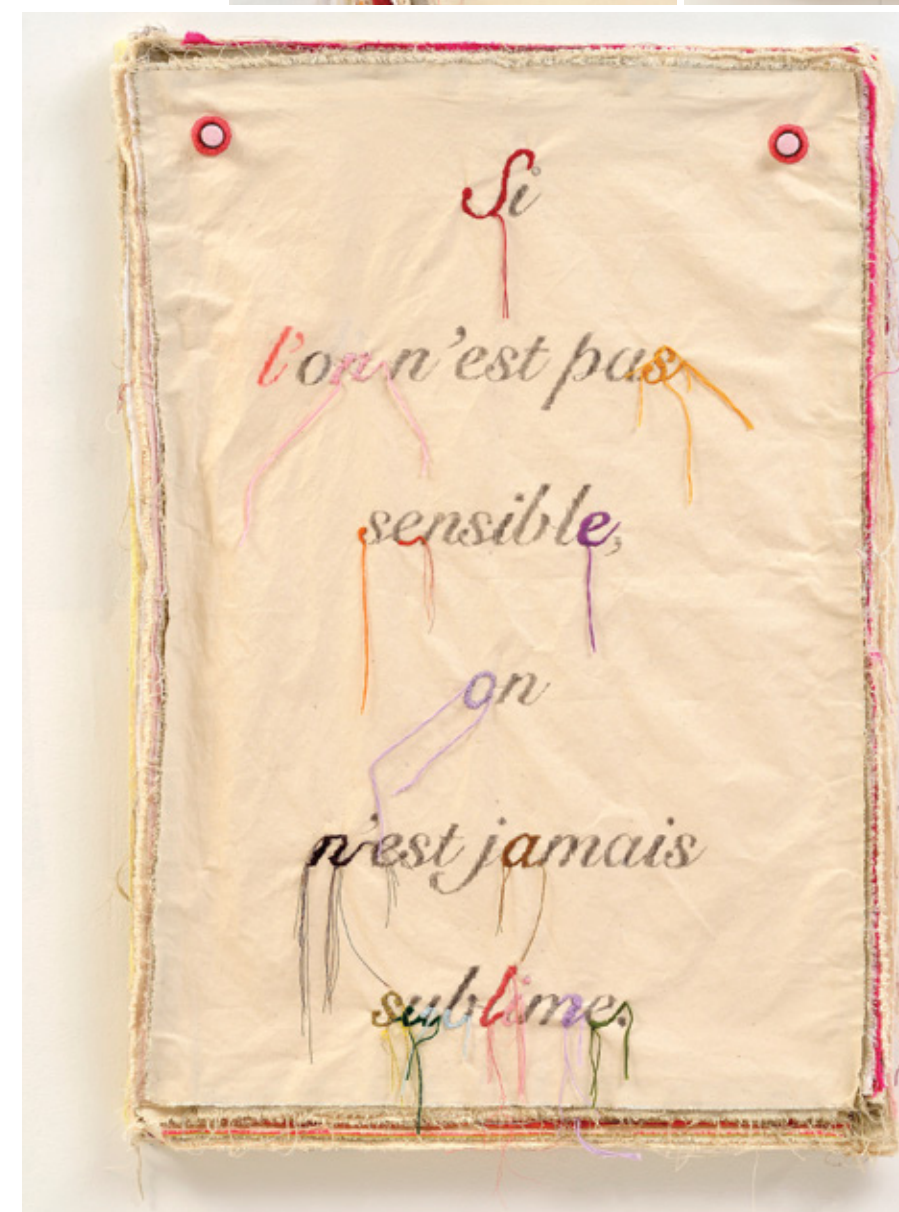 Si
l'on n'est pas
sensible,
on
n'est jamais
sublime.